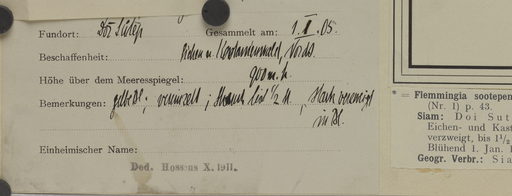 Fundort: Doi Sutep Gesammelt am: 1. I. 05.
Beschaffenheit: Eichen u. Kastanienwald, Nords.
Höhe über dem Meeresspiegel: 900 m. h.
Bemerkungen: gelbe Bl.; vereinzelt; Strauch bis 1½ M., stark verzweigt
in Bl.
Einheimischer Name:
Ded. Hosseus X. 1911.
* = Flemmingia sootepen
(Nr. 1) p. 43.
Siam: Doi Sut
Eichen- und Kast
verzweigt, bis 1½
Blühend 1. Jan. 1
Geogr. Verbr.: Sia